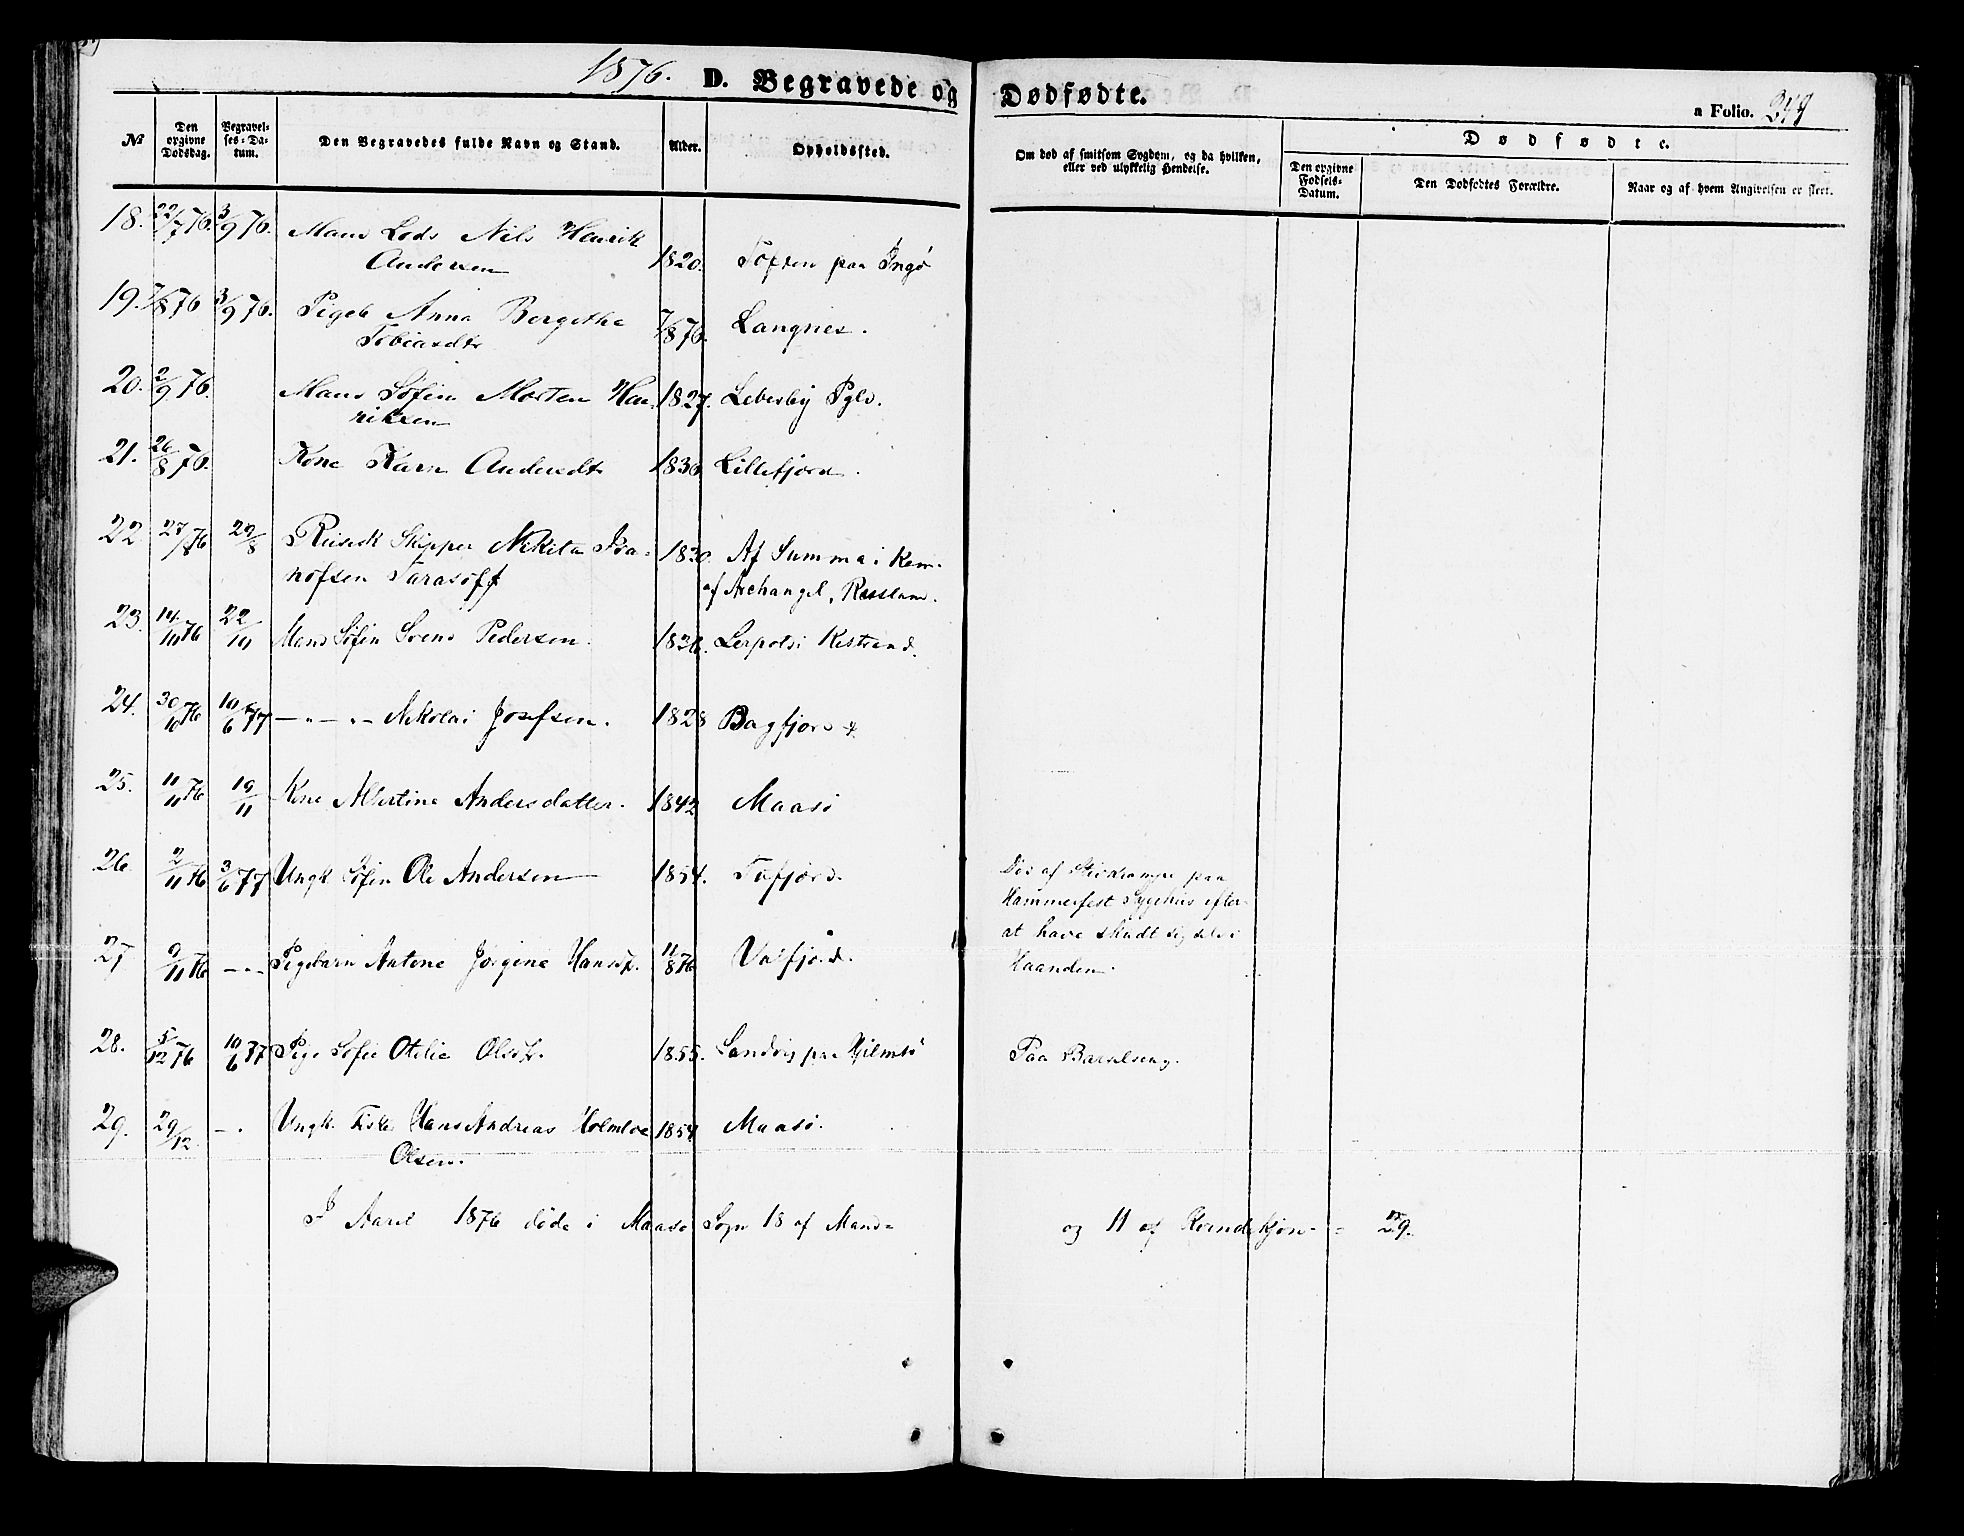 1876. D. Begravede og Dødfødte.
a Folio. 249
№ Den opgivne Dødsdag. Begravelses-Datum. Den Begravedes fulde Navn og Stand. Alder. Opholdssted. Om død af smitsom Sygdom, og da hvilken, eller ved ulykkelig Hendelse. Dødfødte.
Den opgivne Fødsels-Datum. Den Dødfødtes Forældre. Naar og af hvem Angivelsen er skeet.
18. 22/7 76. 3/9 76. Mand Lods Nils Henrik
Andersen 1820. Toften paa Ingø
19. 7/8 76 3/9 76. Pigeb Anna Bergethe
Tobiasdtr 7/8 76. Langnes.
20. 2/9 76. Mand Søfin Morten Hen-
riksen 1827. Lebesby Pgld.
21. 26/8 76. Kone Karn Andersdtr 1830 Lillefjord.
22. 27/8 76 29/8 Russisk Skipper Nekita Iva-
nofsen Tarasoff 1830. Af Summa i Kem.
af Archangel, Russland.
23. 14/10 76 22/10 Mand Søfin Svend Pedersen. 1826. Lerpold i Kistrand.
24. 30/10 76 10/6 77 — „ — „ — Nikolai Josefsen. 1828 Bagfjord
25. 11/11 76 19/11 Kone Albertine Andersdatter. 1842 Maasø
26. 2/11 76 3/6 77 Ungk Søfin Ole Andersen 1854. Tufjord.
Død af Stivkrampe paa
Hammerfest Sygehus efter
at have skudt sig selv i
Haanden.
27 9/11 76 — „ — Pigebarn Antone Jørgine Hansd. 11/8 76 Valfjord.
28. 5/12 76 10/6 77 Pige Søfin Otelie Olsd. 1855. Sandvig paa Hjelmsø Paa Barselseng.
29. 29/12 — „ Ungk. Fisker Hans Andreas Holmboe
Olsen. 1854 Maasø.
I Aaret 1876 døde i Maasø Sogn 18 af Mand- og 11 af Kvindekjøn - = 29.